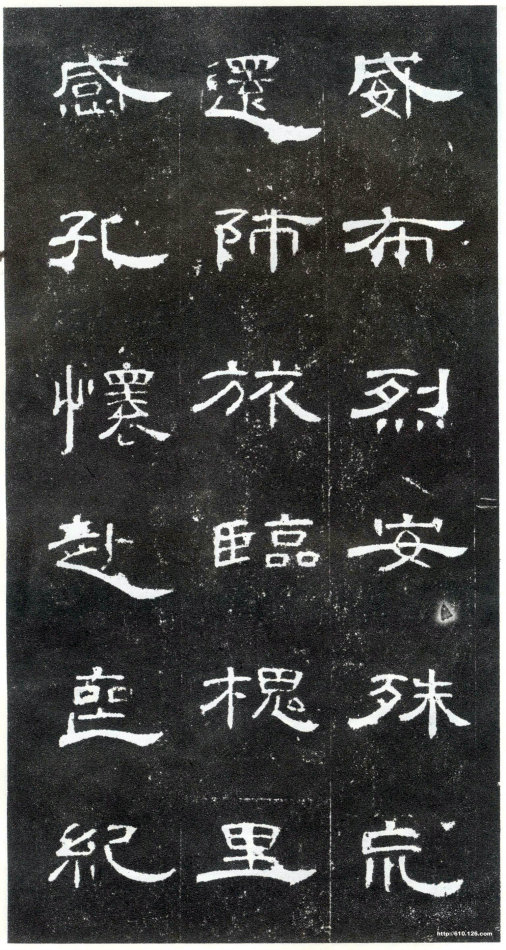 威布烈安殊巟
還師旅臨槐里
感孔懷赴喪紀
http://610.126.com